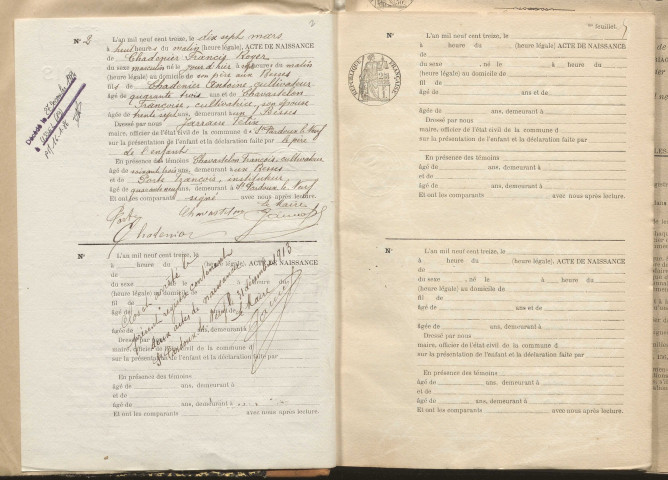 2
N° 2 L'an mil neuf cent treize, le dix sept mars
à heures du matin (heure légale) ACTE DE NAISSANCE
de Chadenier Francis Roger
du sexe masculin né le jour d'hier à heures du matin
(heure légale) au domicile de son père aux Besses
fils de Chadenier Antoine, cultivateur
âgé de quarante trois ans et de Chavastelon
Françoise, cultivatrice, son épouse
âgée de trente sept ans, demeurant à aux Besses
Dressé par nous
maire, officier de l'état civil de la commune de St Pardoux le Neuf
sur la présentation de l'enfant et la déclaration faite par le père
de l'enfant
En présence des témoins Chavastelon François, cultivateur
âgé de ans, demeurant à aux Besses
et de Porte François, instituteur
âgé de quarante ans, demeurant à St Pardoux le Neuf
Et ont les comparants signé avec nous après lecture.
Le Maire
Porte Chavastelon
Chadenier
N° L'an mil neuf cent treize, le
à heure du (heure légale) ACTE DE NAISSANCE
de
du sexe , né le à heure du
(heure légale) au domicile de
fil de
âgé de ans et de
âgée de ans, demeurant à
Dressé par nous
maire, officier de l'état civil de la commune d
sur la présentation de l'enfant et la déclaration faite par
En présence des témoins
âgé de ans, demeurant à
et de
âgé de ans, demeurant à
Et ont les comparants avec nous après lecture.
Clos et arrêté le
présent registre contenant
deux actes de naissances
St Pardoux le Neuf le 31 décembre 1913
Le Maire
feuillet.
RÉPUBLIQUE FRANÇAISE
N° L'an mil neuf cent treize, le
à heure du (heure légale) ACTE DE NAISSANCE
de
du sexe , né le à heure du
(heure légale) au domicile de
fil de
âgé de ans et de
âgée de ans, demeurant à
Dressé par nous
maire, officier de l'état civil de la commune d
sur la présentation de l'enfant et la déclaration faite par
En présence des témoins
âgé de ans, demeurant à
et de
âgé de ans, demeurant à
Et ont les comparants avec nous après lecture.
N° L'an mil neuf cent treize, le
à heure du (heure légale) ACTE DE NAISSANCE
de
du sexe , né le à heure du
(heure légale) au domicile de
fil de
âgé de ans et de
âgée de ans, demeurant à
Dressé par nous
maire, officier de l'état civil de la commune d
sur la présentation de l'enfant et la déclaration faite par
En présence des témoins
âgé de ans, demeurant à
et de
âgé de ans, demeurant à
Et ont les comparants avec nous après lecture.